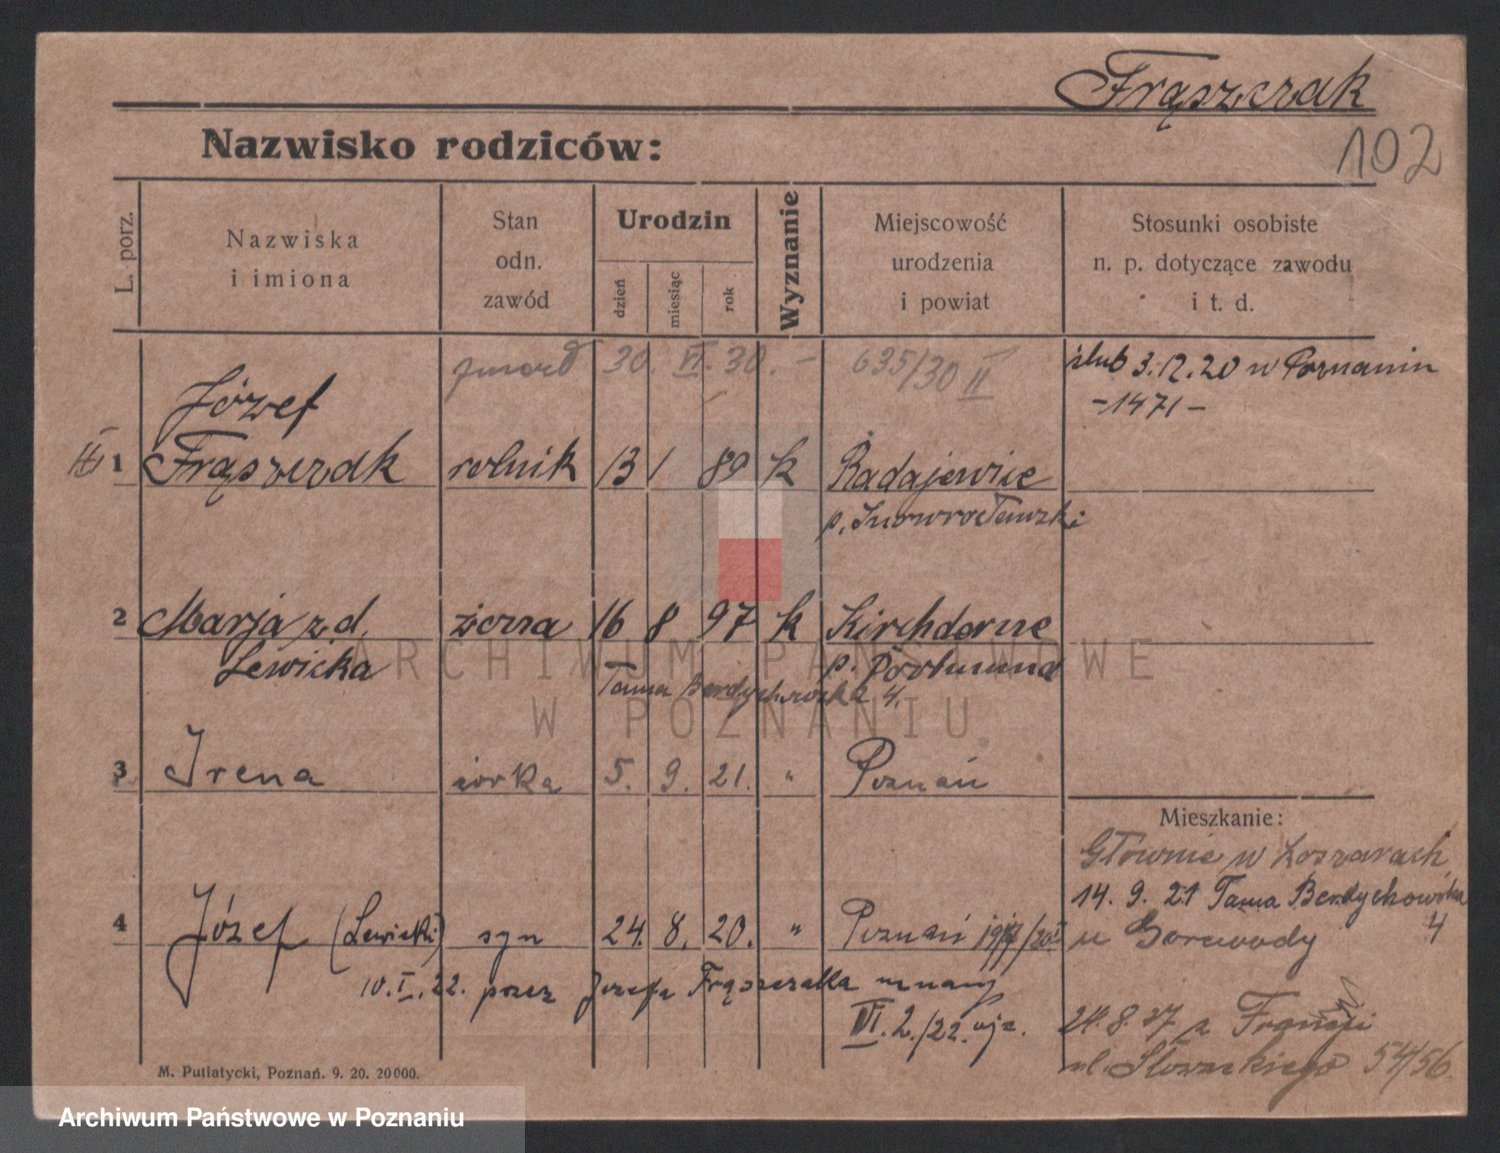 Frąszczak
102
Nazwisko rodziców:
L. porz.
Nazwiska
i imiona
Stan
odn.
zawód
Urodzin
dzień
miesiąc
rok
Wyznanie
Miejscowość
urodzenia
i powiat
Stosunki osobiste
n. p. dotyczące zawodu
i t. d.
zmarł 30. VI. 30. - 635/30 II
ślub 3.12.20 w Poznaniu
-1471-
Józef
1 Frąszczak rolnik 13 1 89 k Radajewice
p. Inowrocławski
2 Marja z d. żona 16 8 97 k Kirchderne
Lewicka p. Dortmund
Tama Berdychowska 4.
3 Irena córka 5. 9. 21. " Poznań
Mieszkanie:
Głównie w koszarach
14. 9. 21 Tama Berdychowska
4
4 Józef (Lewicki) syn 24. 8. 20. " Poznań
u
10. I. 22. przez Józefa Frąszczaka uznany
VI. 2./22.
24. 8. 27 z Francji
ul. Słowackiego 54/56.
M. Putiatycki, Poznań. 9. 20. 20000.
ARCHIWUM PAŃSTWOWE
W POZNANIU
Archiwum Państwowe w Poznaniu